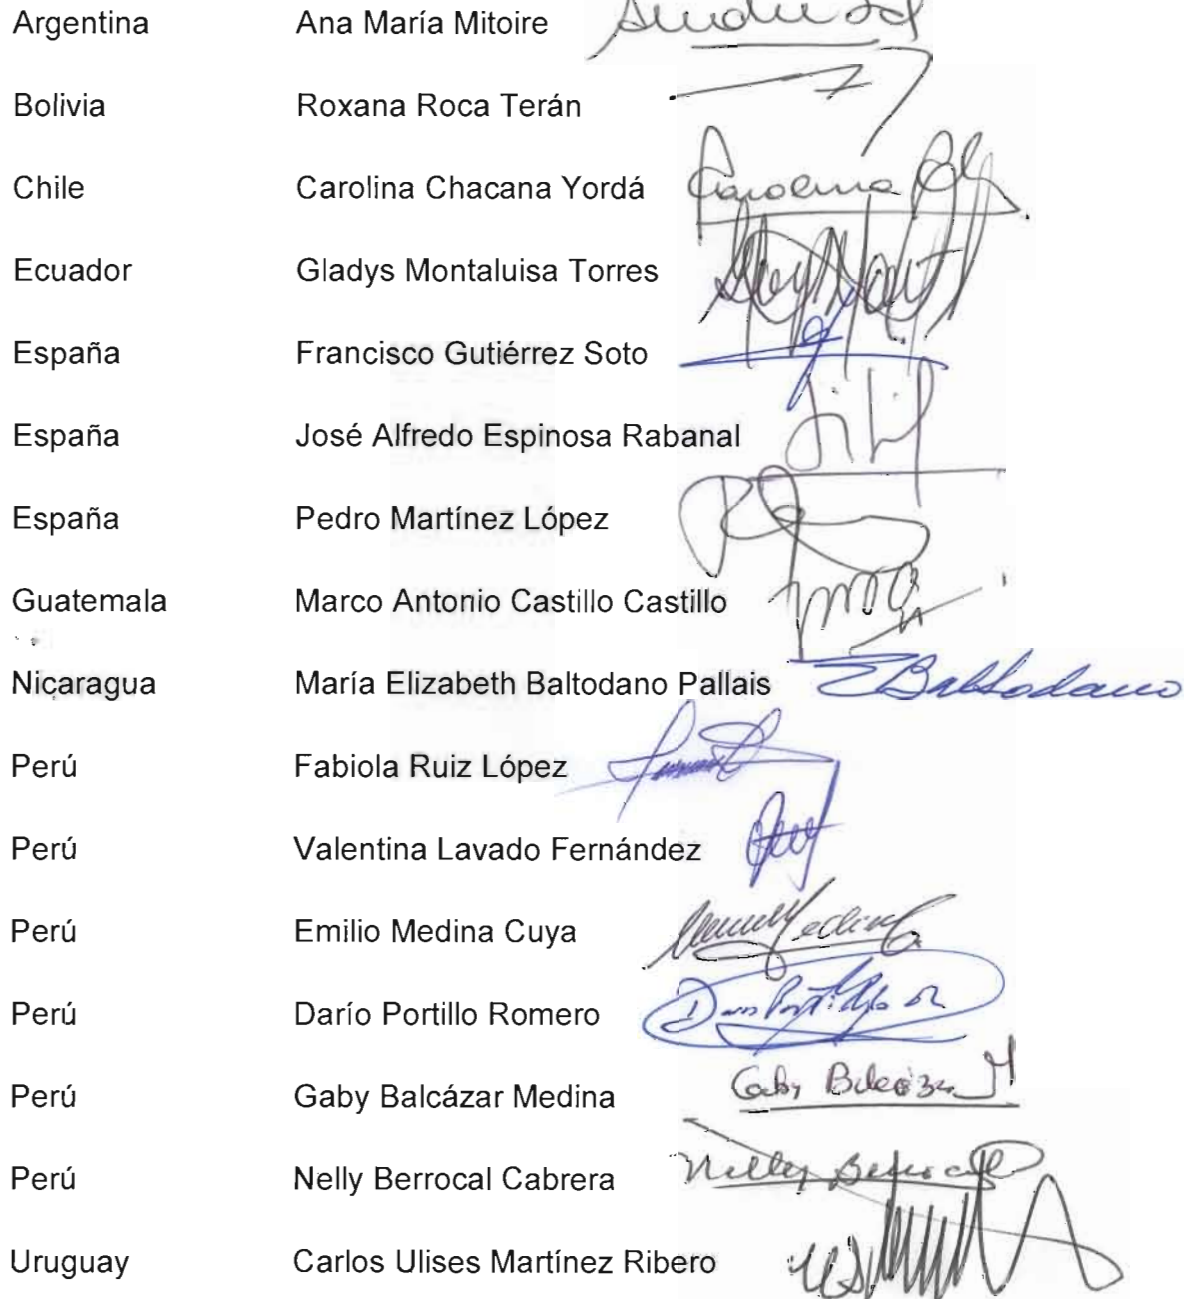 Argentina Ana María Mitoire
Bolivia Roxana Roca Terán
Chile Carolina Chacana Yordá Carolina
Ecuador Gladys Montaluisa Torres
España Francisco Gutiérrez Soto
España José Alfredo Espinosa Rabanal
España Pedro Martínez López
Guatemala Marco Antonio Castillo Castillo
Nicaragua María Elizabeth Baltodano Pallais EBaltodano
Perú Fabiola Ruiz López
Perú Valentina Lavado Fernández
Perú Emilio Medina Cuya
Perú Darío Portillo Romero
Perú Gaby Balcázar Medina Gaby
Perú Nelly Berrocal Cabrera Nelly Berrocal
Uruguay Carlos Ulises Martínez Ribero